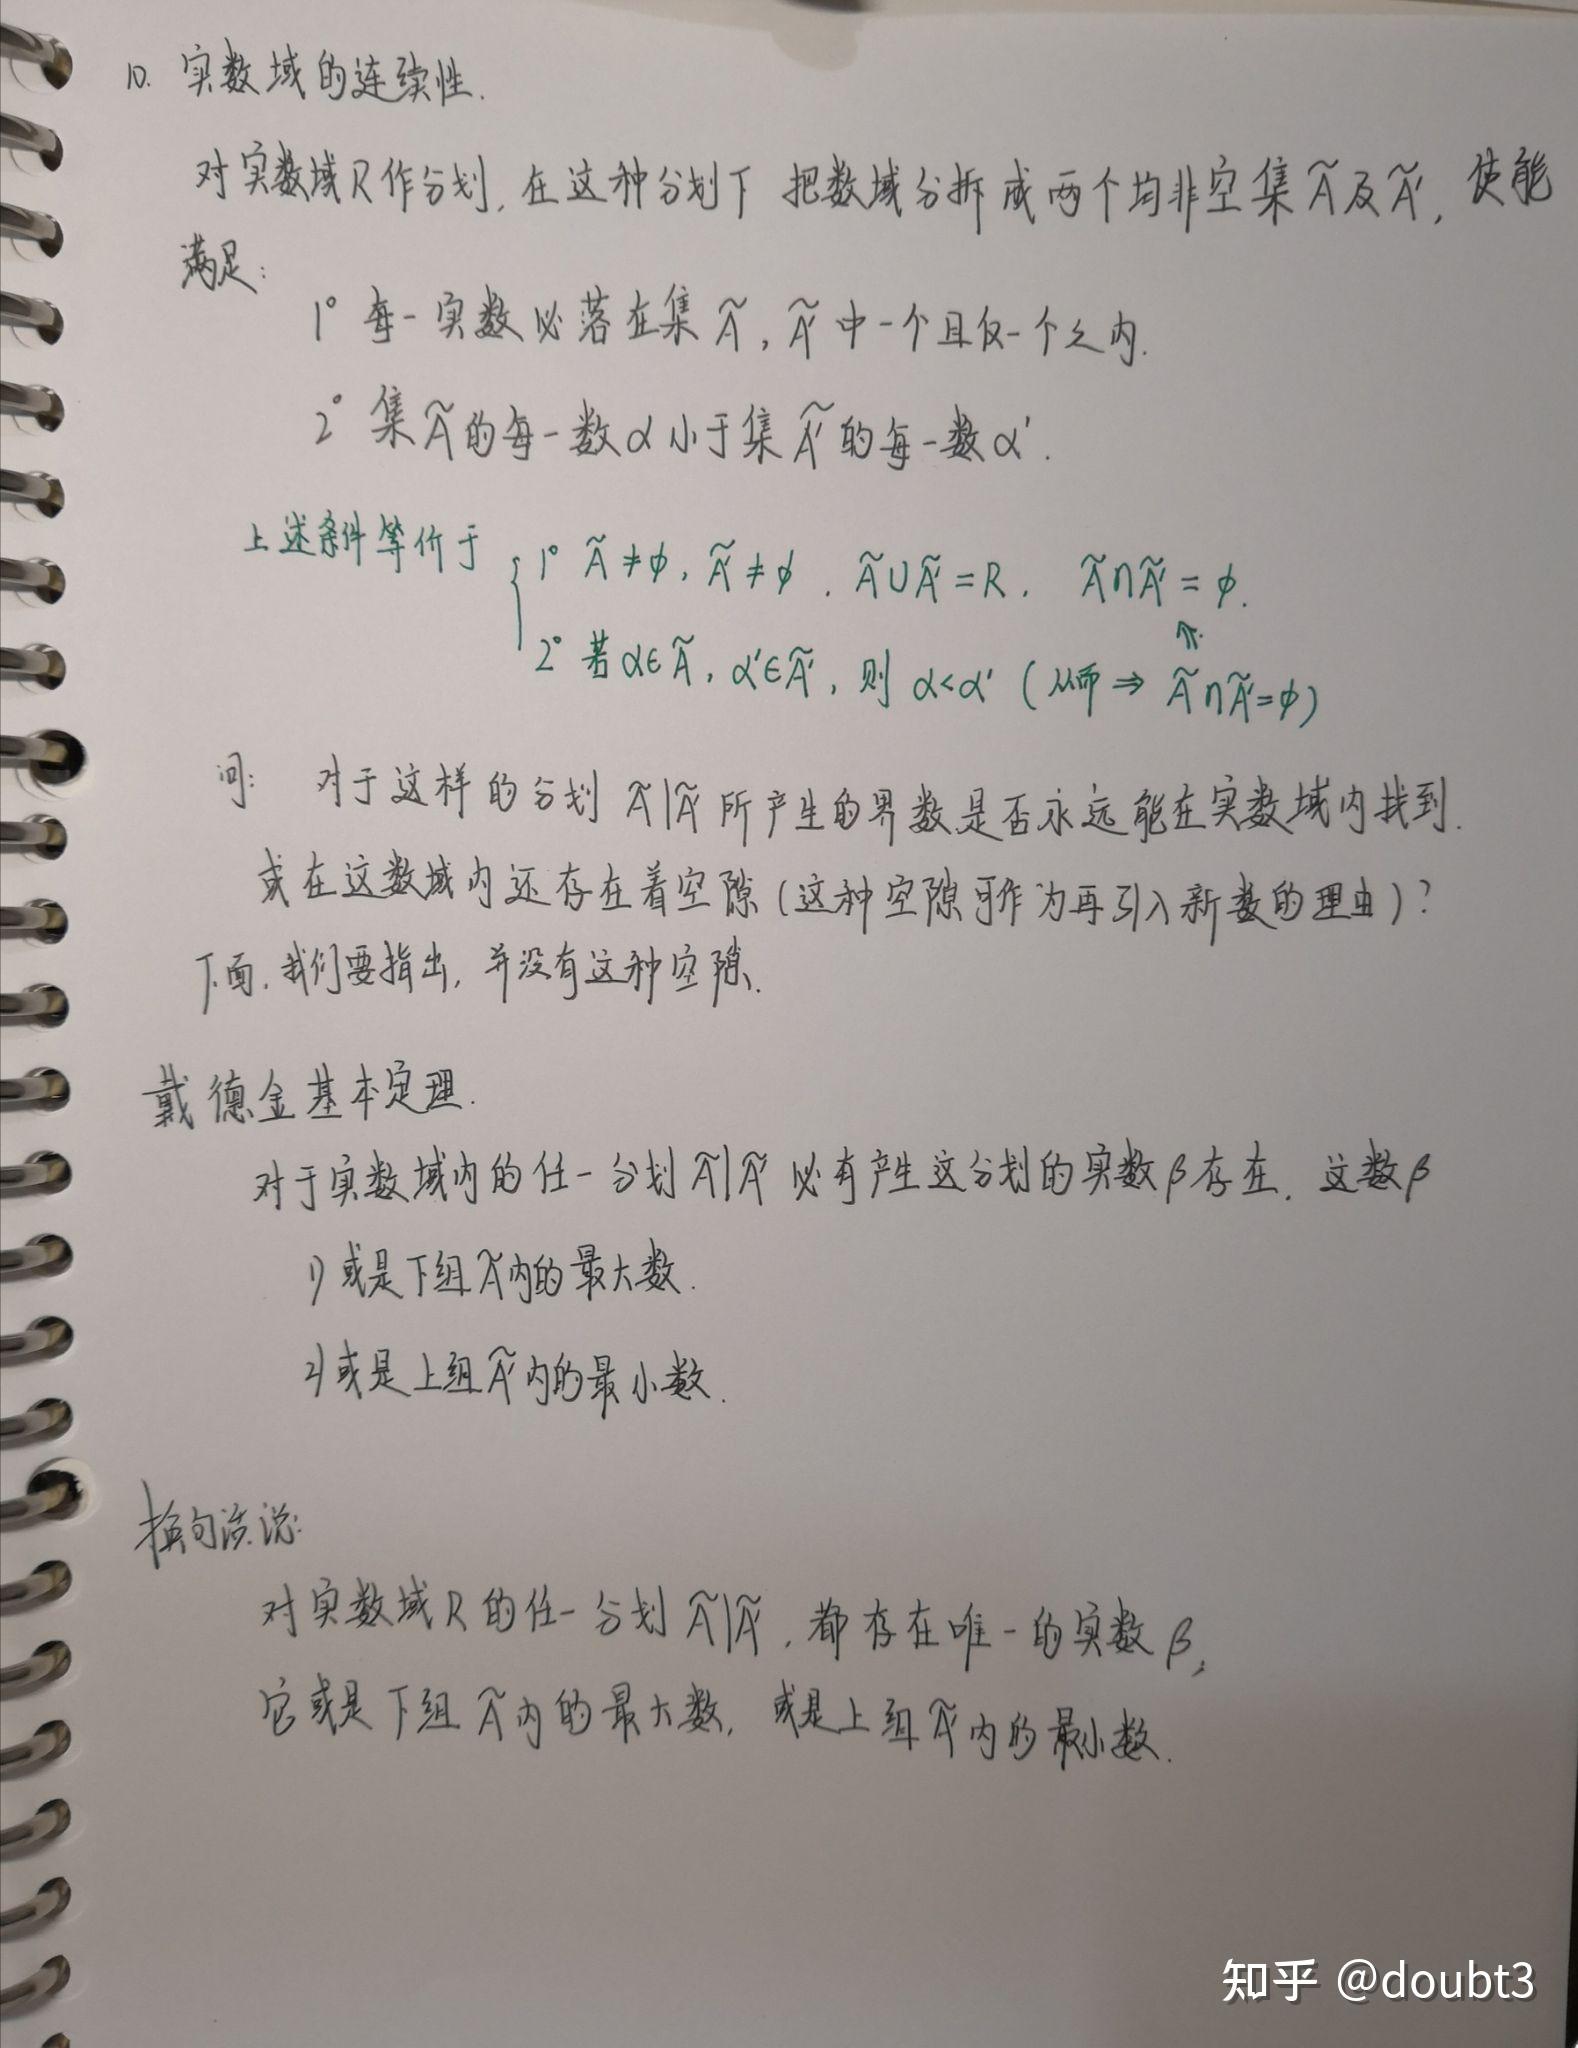 10. 实数域的连续性.
对实数域R作分划, 在这种分划下 把数域分拆成两个均非空集Ã及Ã', 使能
满足:
1° 每一实数必落在集Ã, Ã'中一个且仅一个之内.
2° 集Ã的每一数α小于集Ã'的每一数α'.
上述条件等价于
1° Ã≠φ, Ã'≠φ, Ã∪Ã'=R, Ã∩Ã'=φ.
⇑
2° 若α∈Ã, α'∈Ã', 则 α<α' (从而 ⇒ Ã∩Ã'=φ)
问: 对于这样的分划 Ã|Ã' 所产生的界数是否永远能在实数域内找到.
或在这数域内还存在着空隙(这种空隙可作为再引入新数的理由)?
下面, 我们要指出, 并没有这种空隙.
戴德金基本定理.
对于实数域内的任一分划Ã|Ã' 必有产生这分划的实数β存在. 这数β
1) 或是下组Ã内的最大数.
2) 或是上组Ã'内的最小数.
换句话说:
对实数域R的任一分划Ã|Ã', 都存在唯一的实数β,
它或是下组Ã内的最大数, 或是上组Ã'内的最小数.
知乎 @doubt3